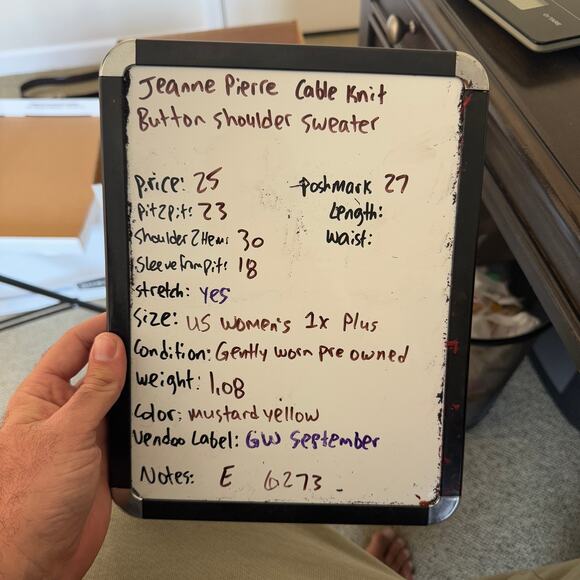 Jeanne Pierre Cable Knit
Button shoulder sweater
price: 25
Poshmark 27
Pit2pit: 23
Length:
Shoulder2Hem: 30
Waist:
Sleeve from pit: 18
Stretch: yes
Size: US Women's 1x Plus
Condition: Gently worn pre owned
weight: 1.08
Color: mustard yellow
Vendoo Label: GW September
Notes: E 6273